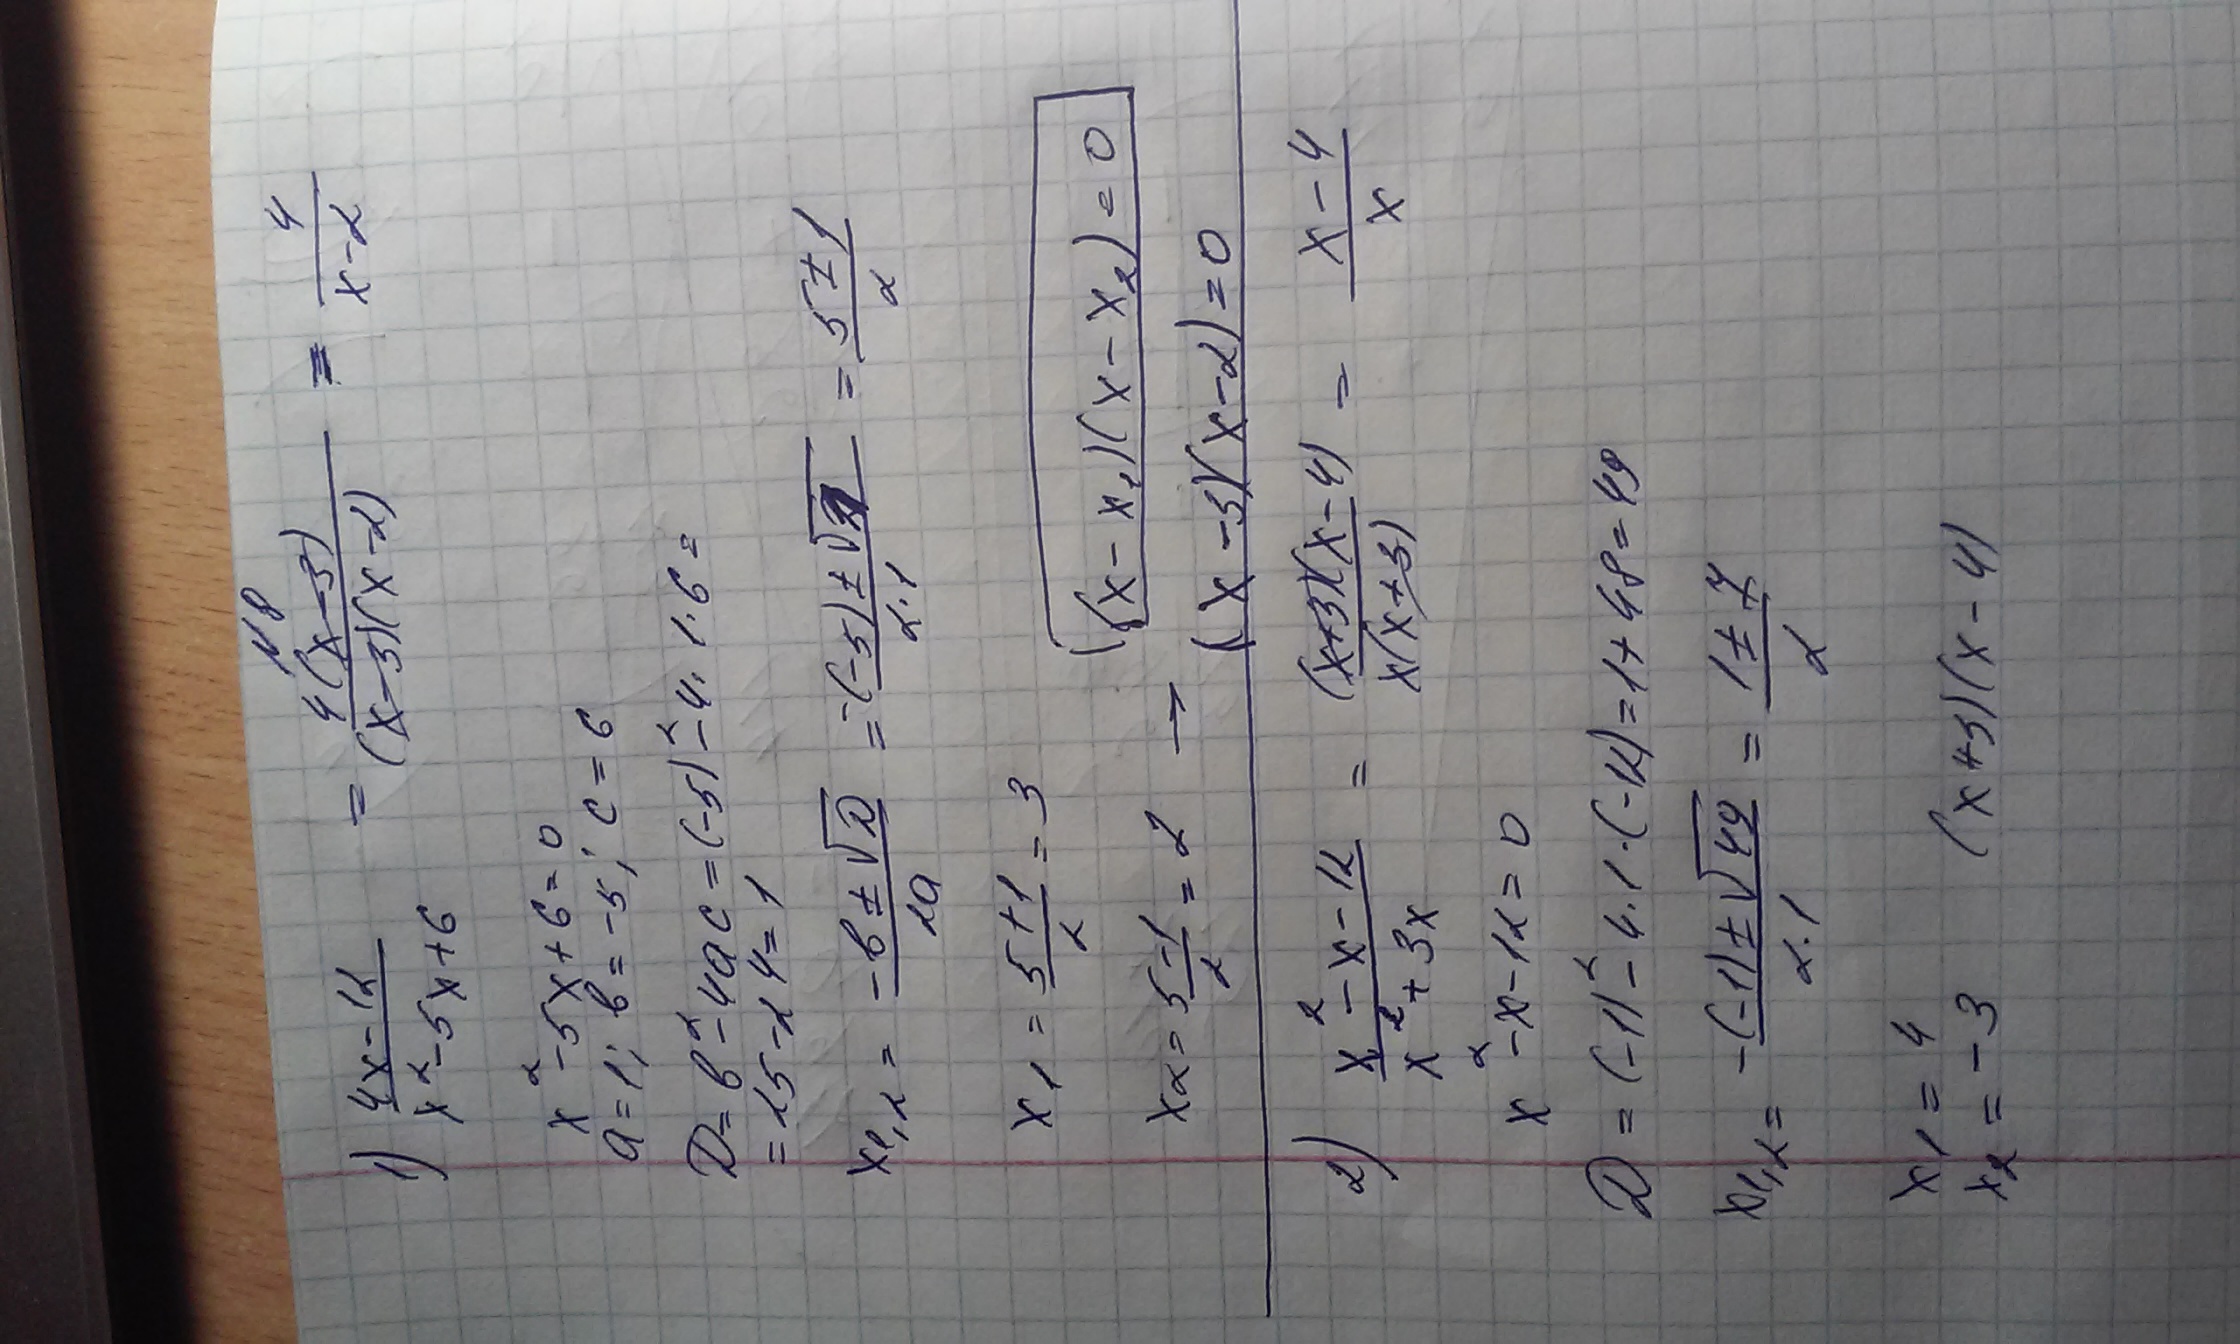 N8
1) (4x-12)/(x²-5x+6) = (4(x-3))/((x-3)(x-2)) = 4/(x-2)
x²-5x+6=0
a=1; b=-5; c=6
D=b²-4ac=(-5)²-4·1·6=
=25-24=1
x1,2= (-b±√D)/2a = (-(-5)±√1)/(2·1) = (5±1)/2
x1 = (5+1)/2 = 3
(x-x1)(x-x2)=0
x2= (5-1)/2 = 2 → (x-3)(x-2)=0
2) (x²-x-12)/(x²+3x) = ((x+3)(x-4))/(x(x+3)) = (x-4)/x
x²-x-12=0
D=(-1)²-4·1·(-12)=1+48=49
x1,2= (-(-1)±√49)/(2·1) = (1±7)/2
x1=4
x2=-3 (x+3)(x-4)